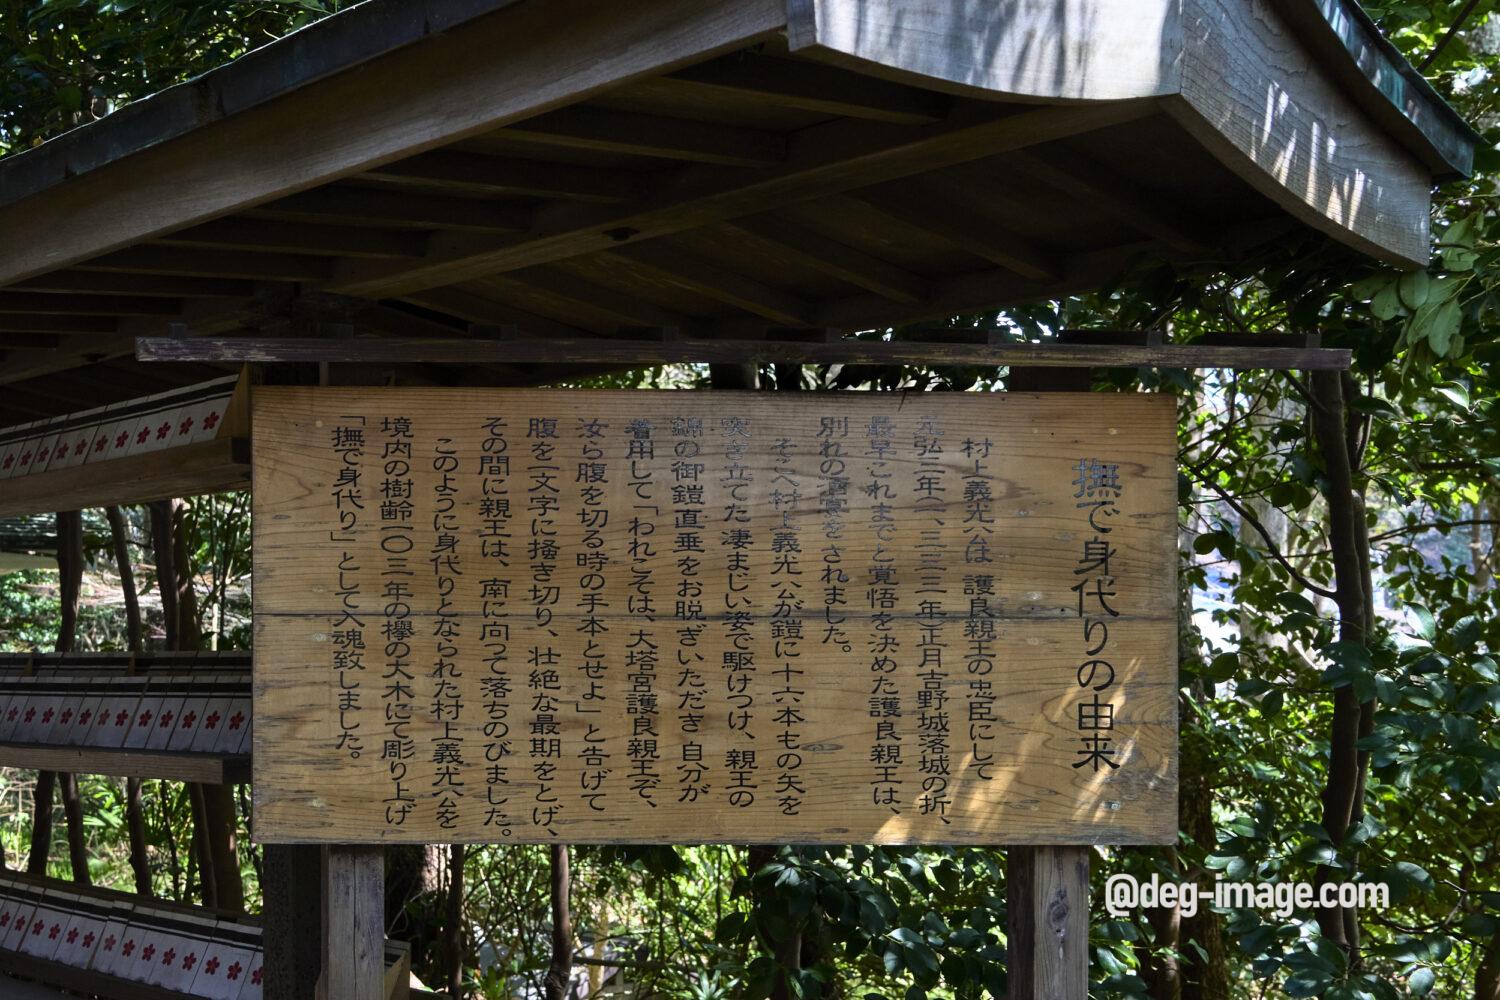 撫で身代りの由来
村上義光公は 護良親王の忠臣にして
元弘三年(一、三三三年)正月吉野城落城の折、
最早これまでと覚悟を決めた護良親王は、
別れの酒宴をされました。
そこへ村上義光公が鎧に十六本もの矢を
突き立てた凄まじい姿で駆けつけ、親王の
錦の御鎧直垂をお脱ぎいただき 自分が
着用して「われこそは、大塔宮護良親王ぞ、
汝ら腹を切る時の手本とせよ」と告げて
腹を一文字に掻き切り、壮絶な最期をとげ、
その間に親王は、南に向って落ちのびました。
このように身代りとなられた村上義光公を
境内の樹齢一〇三年の欅の大木にて彫り上げ
「撫で身代り」として入魂致しました。
@deg-image.com